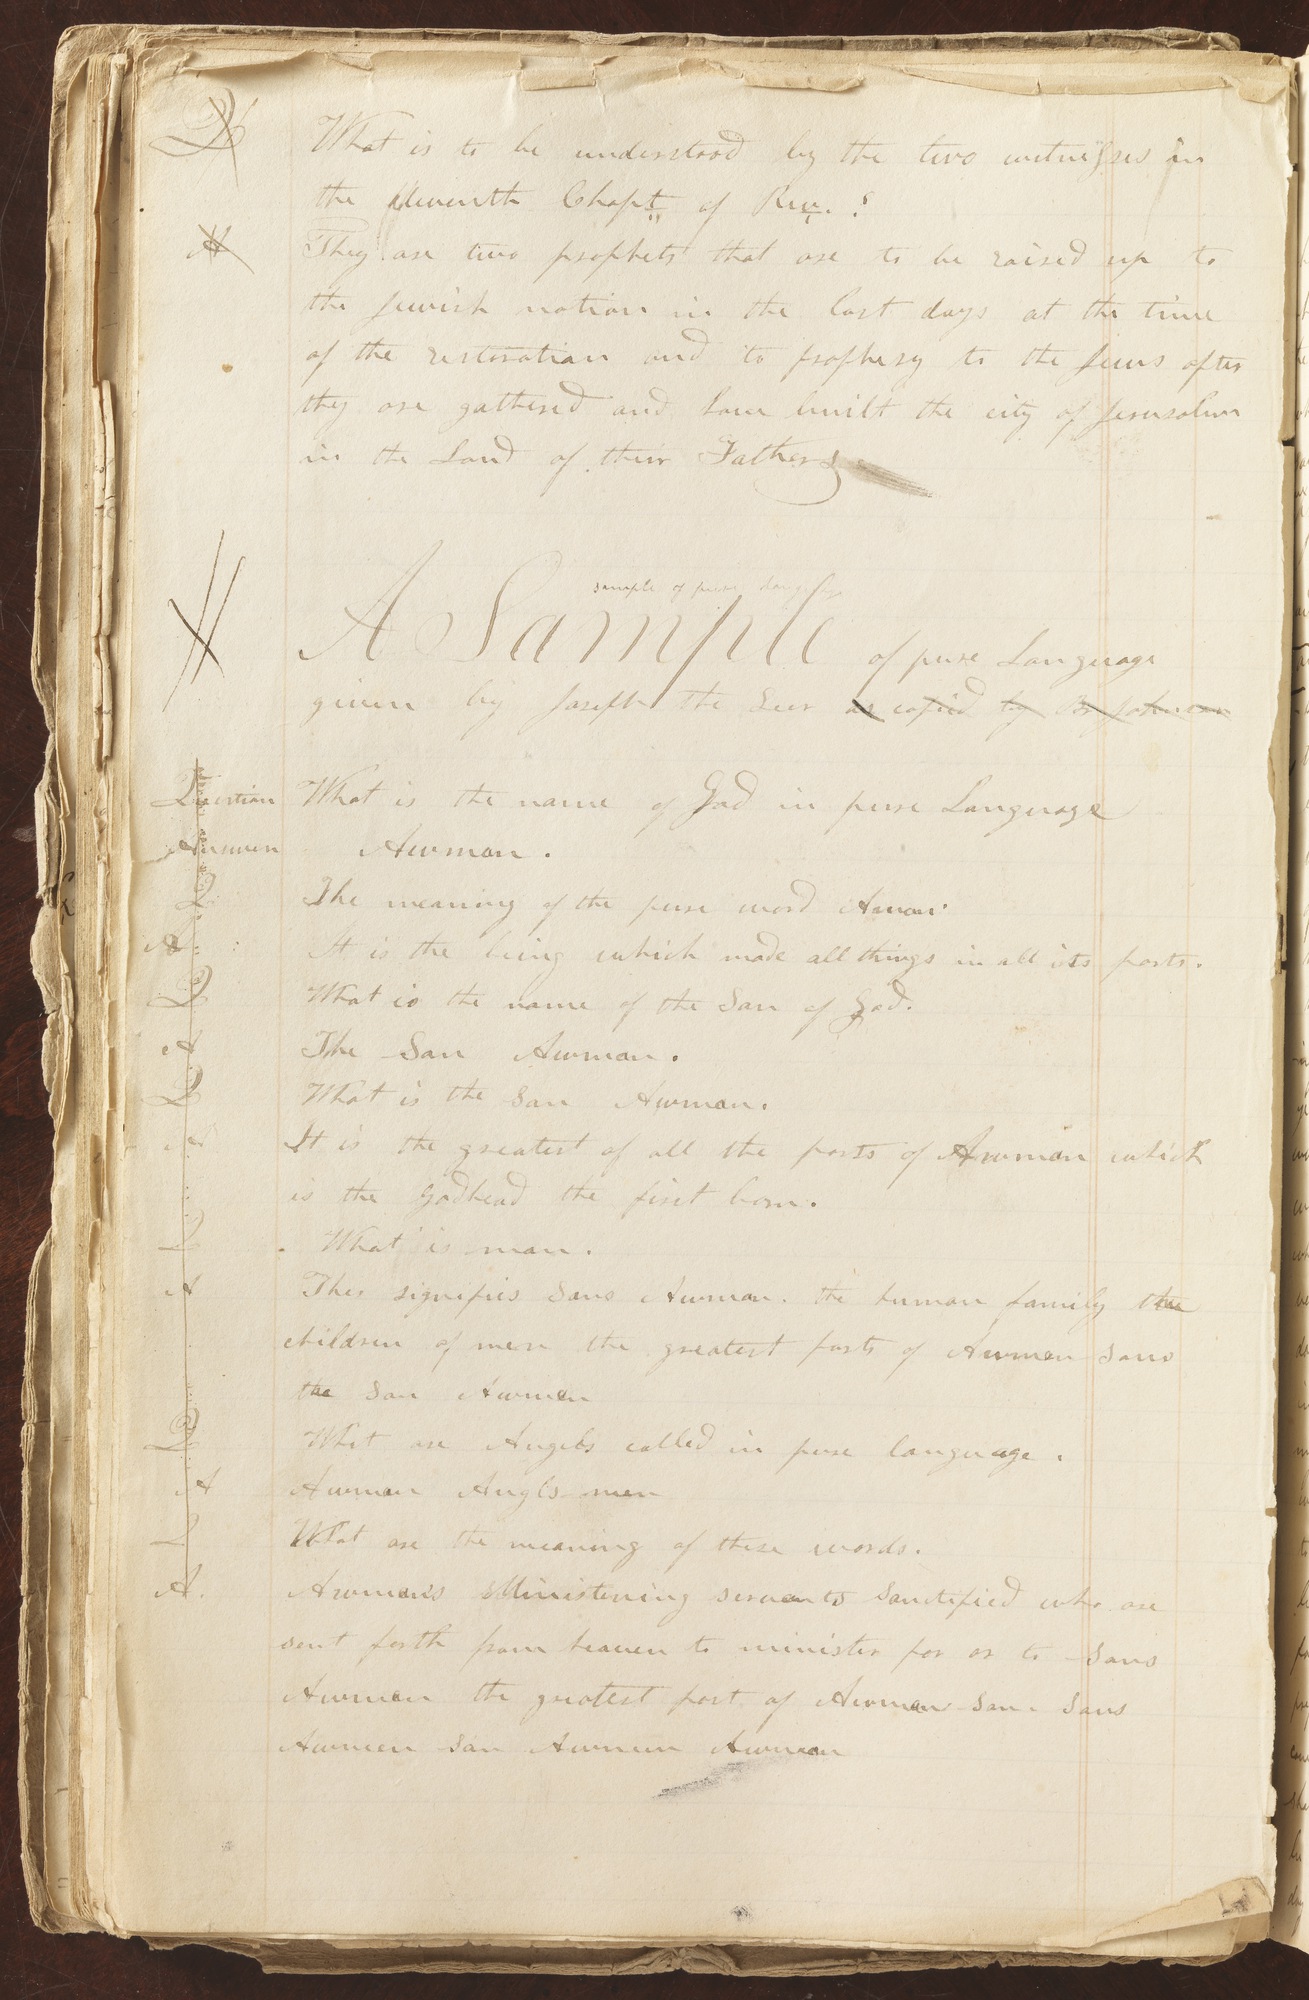 Q What is to be understood by the two witnesses in
the eleventh Chapt. of Rev.?
A They are two prophets that are to be raised up to
the Jewish nation in the last days at the time
of the restoration and to prophesy to the Jews after
they are gathered and have built the city of Jerusalem
in the Land of their Fathers
sample of pure Language
A Sample of pure Language
given by Joseph the Seer as copied by Br Johnson
Question What is the name of God in pure Language
Answer Awman.
Q The meaning of the pure word Awman
A. It is the being which made all things in all its parts.
Q What is the name of the Son of God.
A The Son Awman.
Q What is the Son Awman.
A It is the greatest of all the parts of Awman which
is the Godhead the first born.
Q What is man.
A This signifies Sons Awman. the human family the
children of men the greatest parts of Awman Sons
the Son Awman
Q What are Angels called in pure language.
A Awman Angls men
Q What are the meaning of these words.
A. Awman's Ministering servants Sanctified who are
sent forth from heaven to minister for or to Sons
Awman the greatest part of Awman Son. Sons
Awman Son Awman Awman